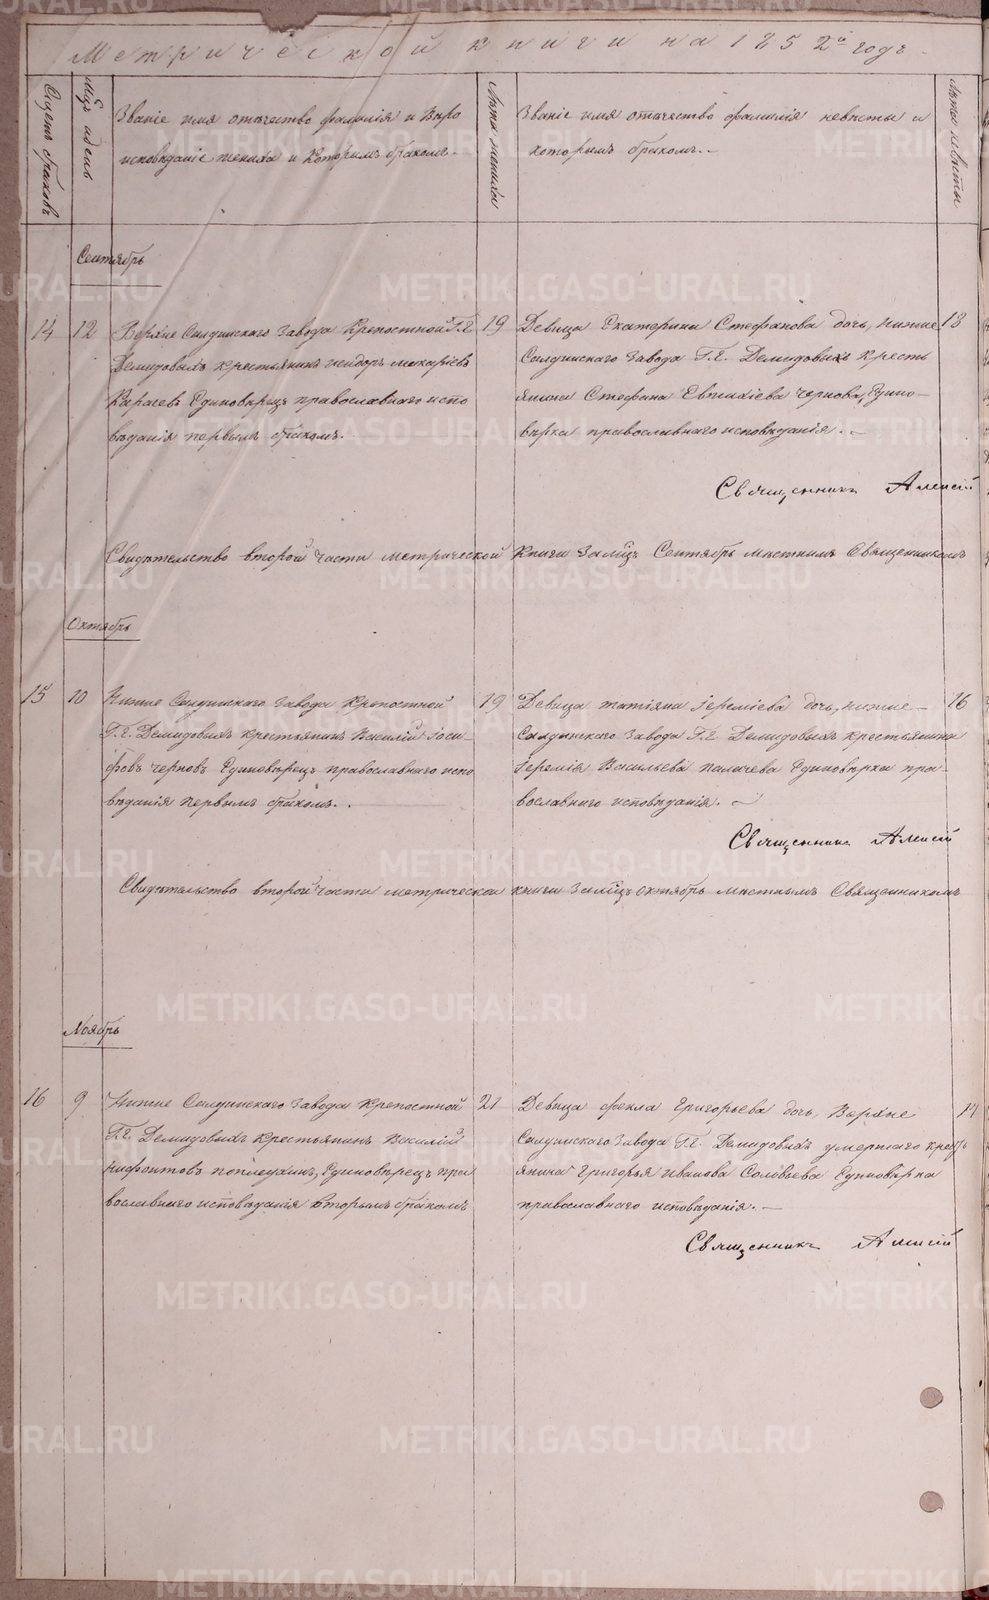 Метрической книги на 1852й годъ
Счетъ браковъ
М-ць и день
Званіе имя отчество фамилія и Вѣро
исповѣданіе жениха и Которымъ бракомъ.
Лѣта жениха
Званіе имя отчество фамилія невѣсты и
которымъ бракомъ.
Лѣта невѣсты
Сентябрь
14
12
Верхне Салдинскаго Завода Крепостной Г.Г.
Демидовыхъ крестьянинъ Исидоръ Макаріевъ
Единовѣрецъ православнаго испо
вѣданія первымъ бракомъ.
19
Девица Екатерина Стефанова дочь, Нижне
Салдинскаго Завода Г.Г. Демидовыхъ кресть
янина Стефана Евтихіева Чернова, Едино-
вѣрка православнаго исповѣданія.
18
Священникъ Алексій
Свидѣтельство второй части метрической книги за м-цъ Сентябрь мѣстнымъ Священникомъ
Октябрь
15
10
Нижне Салдинскаго Завода Крепостной
Г.Г. Демидовыхъ крестьянинъ Василій Іоси
фовъ Черновъ Единовѣрецъ православнаго испо
вѣданія первымъ бракомъ.
19
Девица Татіяна Іереміева дочь, Нижне-
Салдинскаго Завода Г.Г. Демидовыхъ крестьянина
Іеремія Васильева Палачева Единовѣрка пра-
вославнаго исповѣданія.
16
Священникъ Алексій
Свидѣтельство второй части метрической книги за м-цъ Октябрь мѣстнымъ Священникомъ
Ноябрь
16
9
Нижне Салдинскаго Завода Крепостной
Г.Г. Демидовыхъ Крестьянинъ Василій
Нифонтовъ Поплеухинъ, Единовѣрецъ пра
вославнаго исповѣданія вторымъ бракомъ
21
Девица Фекла Григорьева дочь, Верхне
Салдинскаго Завода Г.Г. Демидовыхъ умершаго кресть
янина Григорья Иванова Соловьева Единовѣрка
православнаго исповѣданія.
17
Священникъ Алексій
METRIKI.GASO-URAL.RU